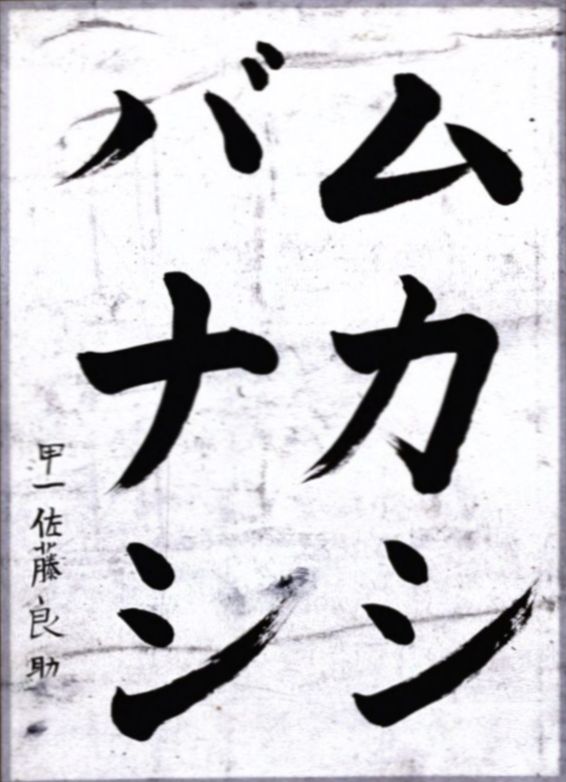 ムカシ
バナシ
甲一佐藤良助